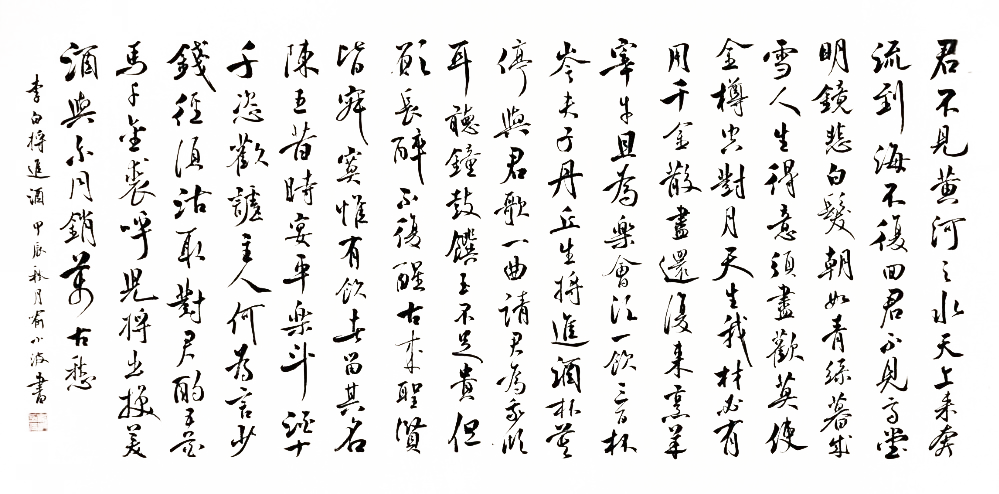 君不見黃河之水天上來奔
流到海不復回君不見高堂
明鏡悲白髮朝如青絲暮成
雪人生得意須盡歡莫使
金樽空對月天生我材必有
用千金散盡還復來烹羊
宰牛且為樂會須一飲三百杯
岑夫子丹丘生將進酒杯莫
停與君歌一曲請君為我傾
耳聽鐘鼓饌玉不足貴但
願長醉不復醒古來聖賢
皆寂寞惟有飲者留其名
陳王昔時宴平樂斗酒十
千恣歡謔主人何為言少
錢徑須沽取對君酌五花
馬千金裘呼兒將出換美
酒與尔同銷萬古愁
李白將進酒 甲辰秋月俞小波書